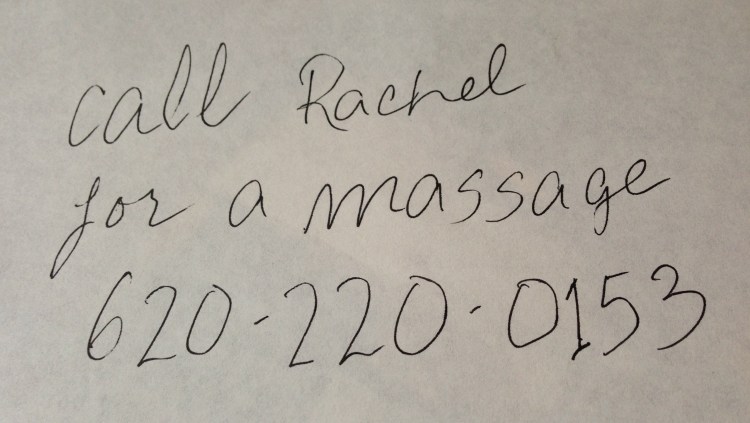 call Rachel
for a massage
620-220-0153